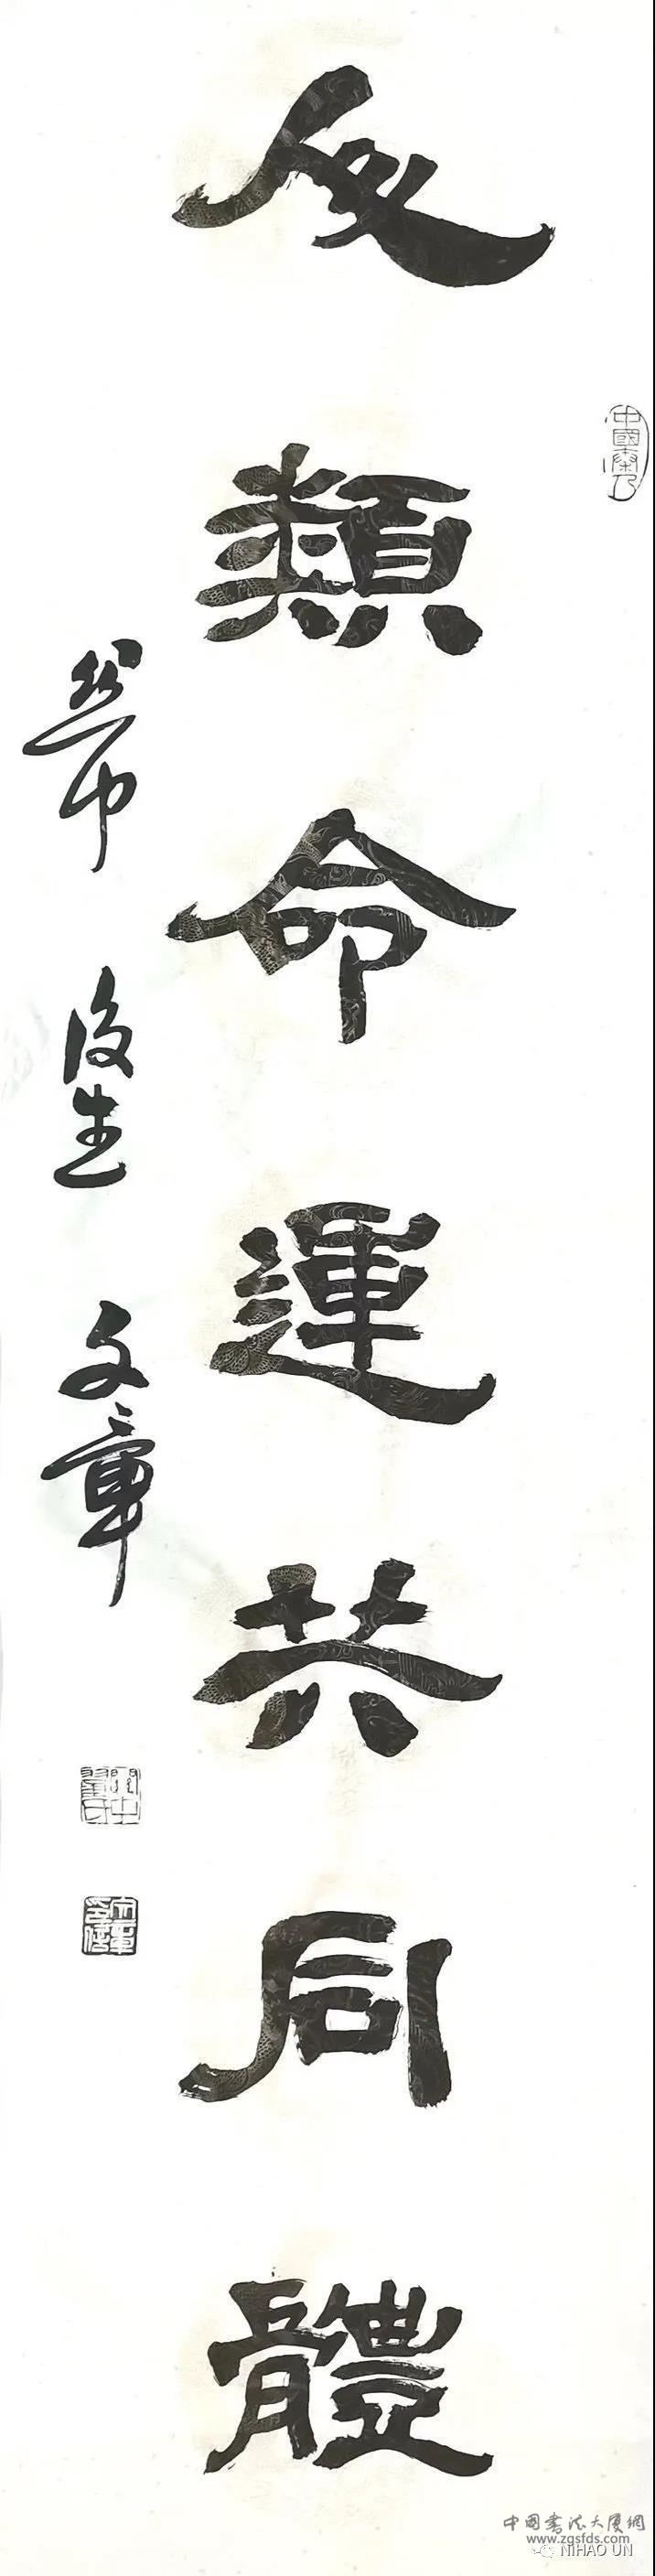 人類命運共同體
關中 後生 文章
中國書法大廈網
www.zgsfds.com
NIHAO UN